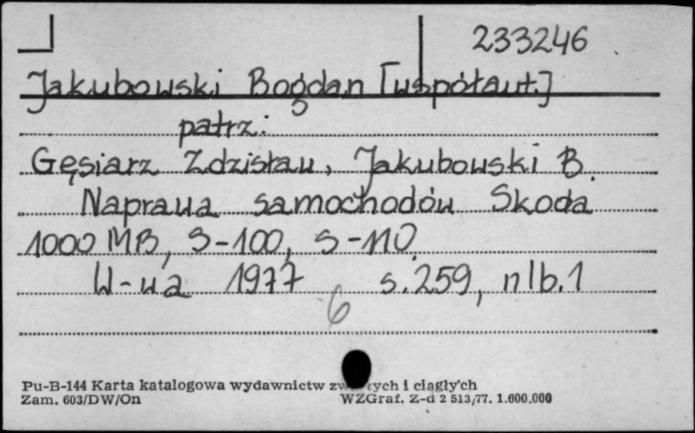 233246
Jakubowski Bogdan [współaut.]
patrz:
Gęsiarz Zdzisław, Jakubowski B.
Naprawa samochodów Skoda
1000 MB, S-100, S-110.
W-wa 1977 s. 259, nlb. 1
6
Pu-B-144 Karta katalogowa wydawnictw zw tych i ciągłych
Zam. 603/DW/On WZGraf. Z-d 2 513/77. 1.600.000